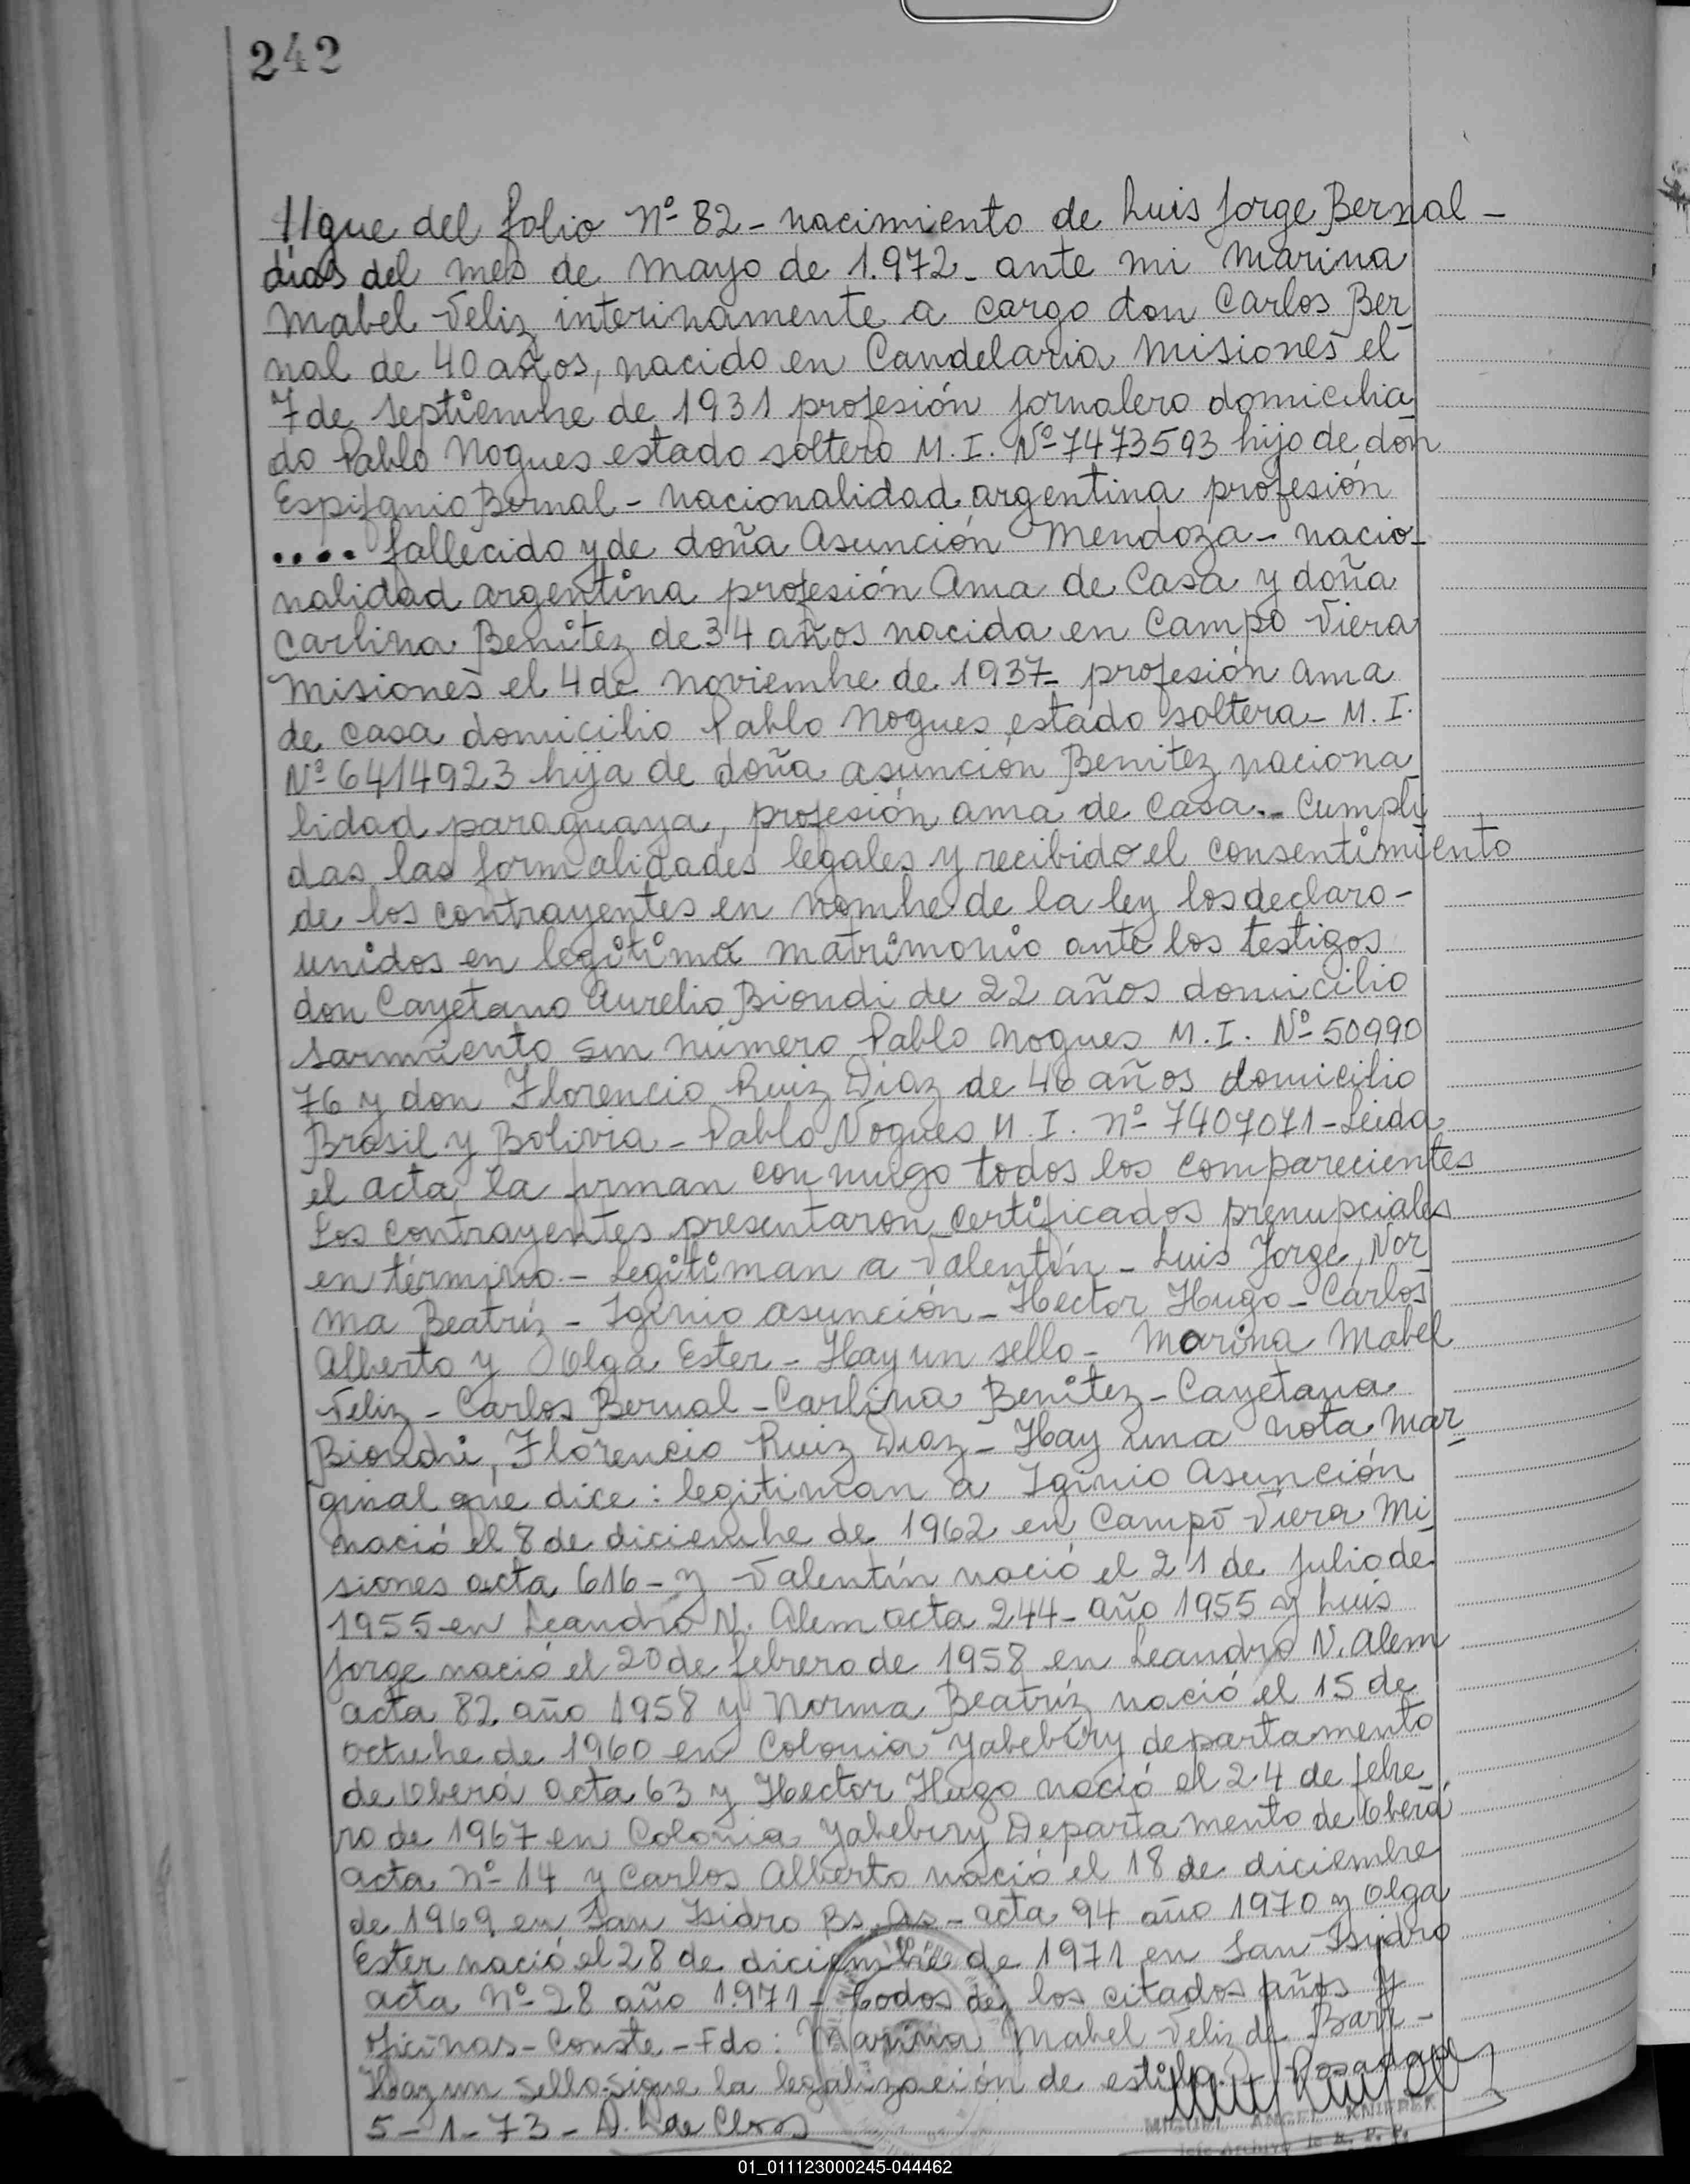 242
//gue del folio Nº 82 - nacimiento de Luis Jorge Bernal -
días del mes de mayo de 1.972 - ante mi Marina
Mabel Veliz interinamente a cargo don Carlos Ber
nal de 40 años, nacido en Candelaria Misiones el
7 de septiembre de 1931 profesión jornalero domicilia
do Pablo Nogues estado soltero M. I. Nº 7473593 hijo de don
Espifanio Bernal - nacionalidad argentina profesión
.... fallecido y de doña Asunción Mendoza - nacio-
nalidad argentina profesión Ama de Casa y doña
Carlina Benitez de 34 años nacida en Campo Viera
Misiones el 4 de noviembre de 1937 - profesión ama
de casa domicilio Pablo Nogues estado soltera - M. I.
Nº 6414923 hija de doña asunción Benitez naciona
lidad paraguaya, profesión ama de casa. - Cumpli
das las formalidades legales y recibido el consentimiento
de los contrayentes en nombre de la ley los declaro -
unidos en legitimo matrimonio ante los testigos
don Cayetano Aurelio Biondi de 22 años domicilio
Sarmiento sin número Pablo Nogues M. I. Nº 50990
76 y don Florencio Ruiz Diaz de 46 años domicilio
Brasil y Bolivia - Pablo Nogues M. I. nº 7407071 - Leida
el acta la firman conmigo todos los comparecientes
Los contrayentes presentaron certificados prenupciales
en término. - Legitiman a Valentín - Luis Jorge, Nor
ma Beatríz - Iginio asunción - Hector Hugo - Carlos
Alberto y Olga Ester - Hay un sello - Marina Mabel
Veliz - Carlos Bernal - Carlina Benitez - Cayetana
Biondi, Florencio Ruiz Diaz - Hay una nota mar
ginal que dice: legitiman a Iginio Asunción
nació el 8 de diciembre de 1962 en Campo Viera Mi
siones acta 616 - y Valentín nació el 21 de Julio de
1955 en Leandro N. Alem acta 244 - año 1955 y Luis
Jorge nació el 20 de febrero de 1958 en Leandro N. Alem
acta 82 año 1958 y Norma Beatríz nació el 15 de
octubre de 1960 en Colonia Yabebiry departamento
de Oberá acta 63 y Hector Hugo nació el 24 de febre
ro de 1967 en Colonia Yabebiry Departamento de Oberá
acta nº 14 y Carlos Alberto nació el 18 de diciembre
de 1969 en San Isidro Bs. As - acta 94 año 1970 y Olga
Ester nació el 28 de diciembre de 1971 en San Isidro
acta Nº 28 año 1.971 - todos de los citados años y
oficinas - Conste - Fdo: Marina Mabel Veliz de Bari -
Hay un sello. Sigue la legalización de estilo. - Posadas
5 - 1 - 73 -
MIGUEL ANGEL KNIEREK
Jefe Archivo de R. P. P.
01_011123000245-044462